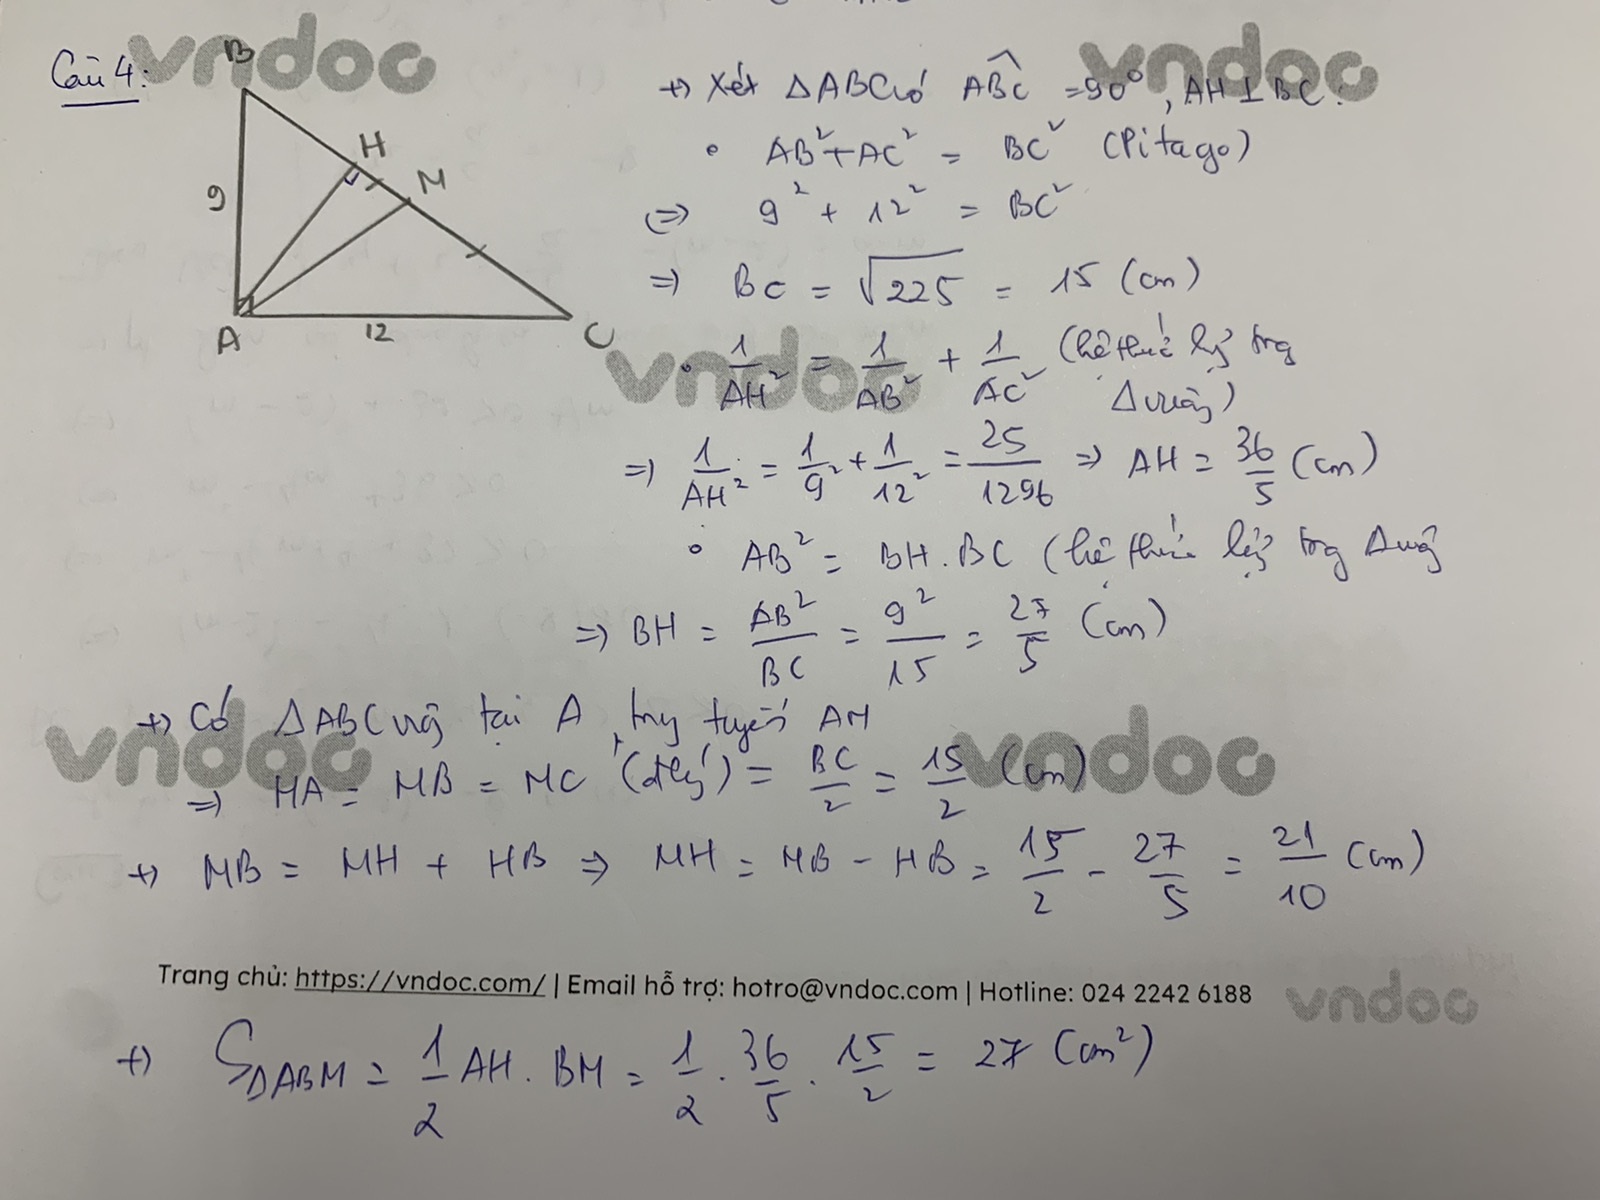 Câu 4:
B
H
M
9
A
12
C
+) Xét ΔABC có ABC = 90°, AH ⊥ BC:
• AB² + AC² = BC² (Pitago)
(=) 9² + 12² = BC²
=) BC = √225 = 15 (cm)
• 1/AH² = 1/AB² + 1/AC² (hệ thức lg trg
Δ vuông)
=) 1/AH² = 1/9² + 1/12² = 25/1296 => AH = 36/5 (cm)
• AB² = BH . BC (hệ thức lg trg Δ vuôg
=) BH = AB²/BC = 9²/15 = 27/5 (cm)
+) Có ΔABC vuôg tại A, trg tuyến AM
=) MA = MB = MC (đlý) = BC/2 = 15/2 (cm)
+) MB = MH + HB => MH = MB - HB = 15/2 - 27/5 = 21/10 (cm)
Trang chủ: https://vndoc.com/ | Email hỗ trợ: hotro@vndoc.com | Hotline: 024 2242 6188
+) SΔABM = 1/2 AH . BM = 1/2 . 36/5 . 15/2 = 27 (cm²)
vndoc
vndoc
vndoc
vndoc
vndoc
vndoc